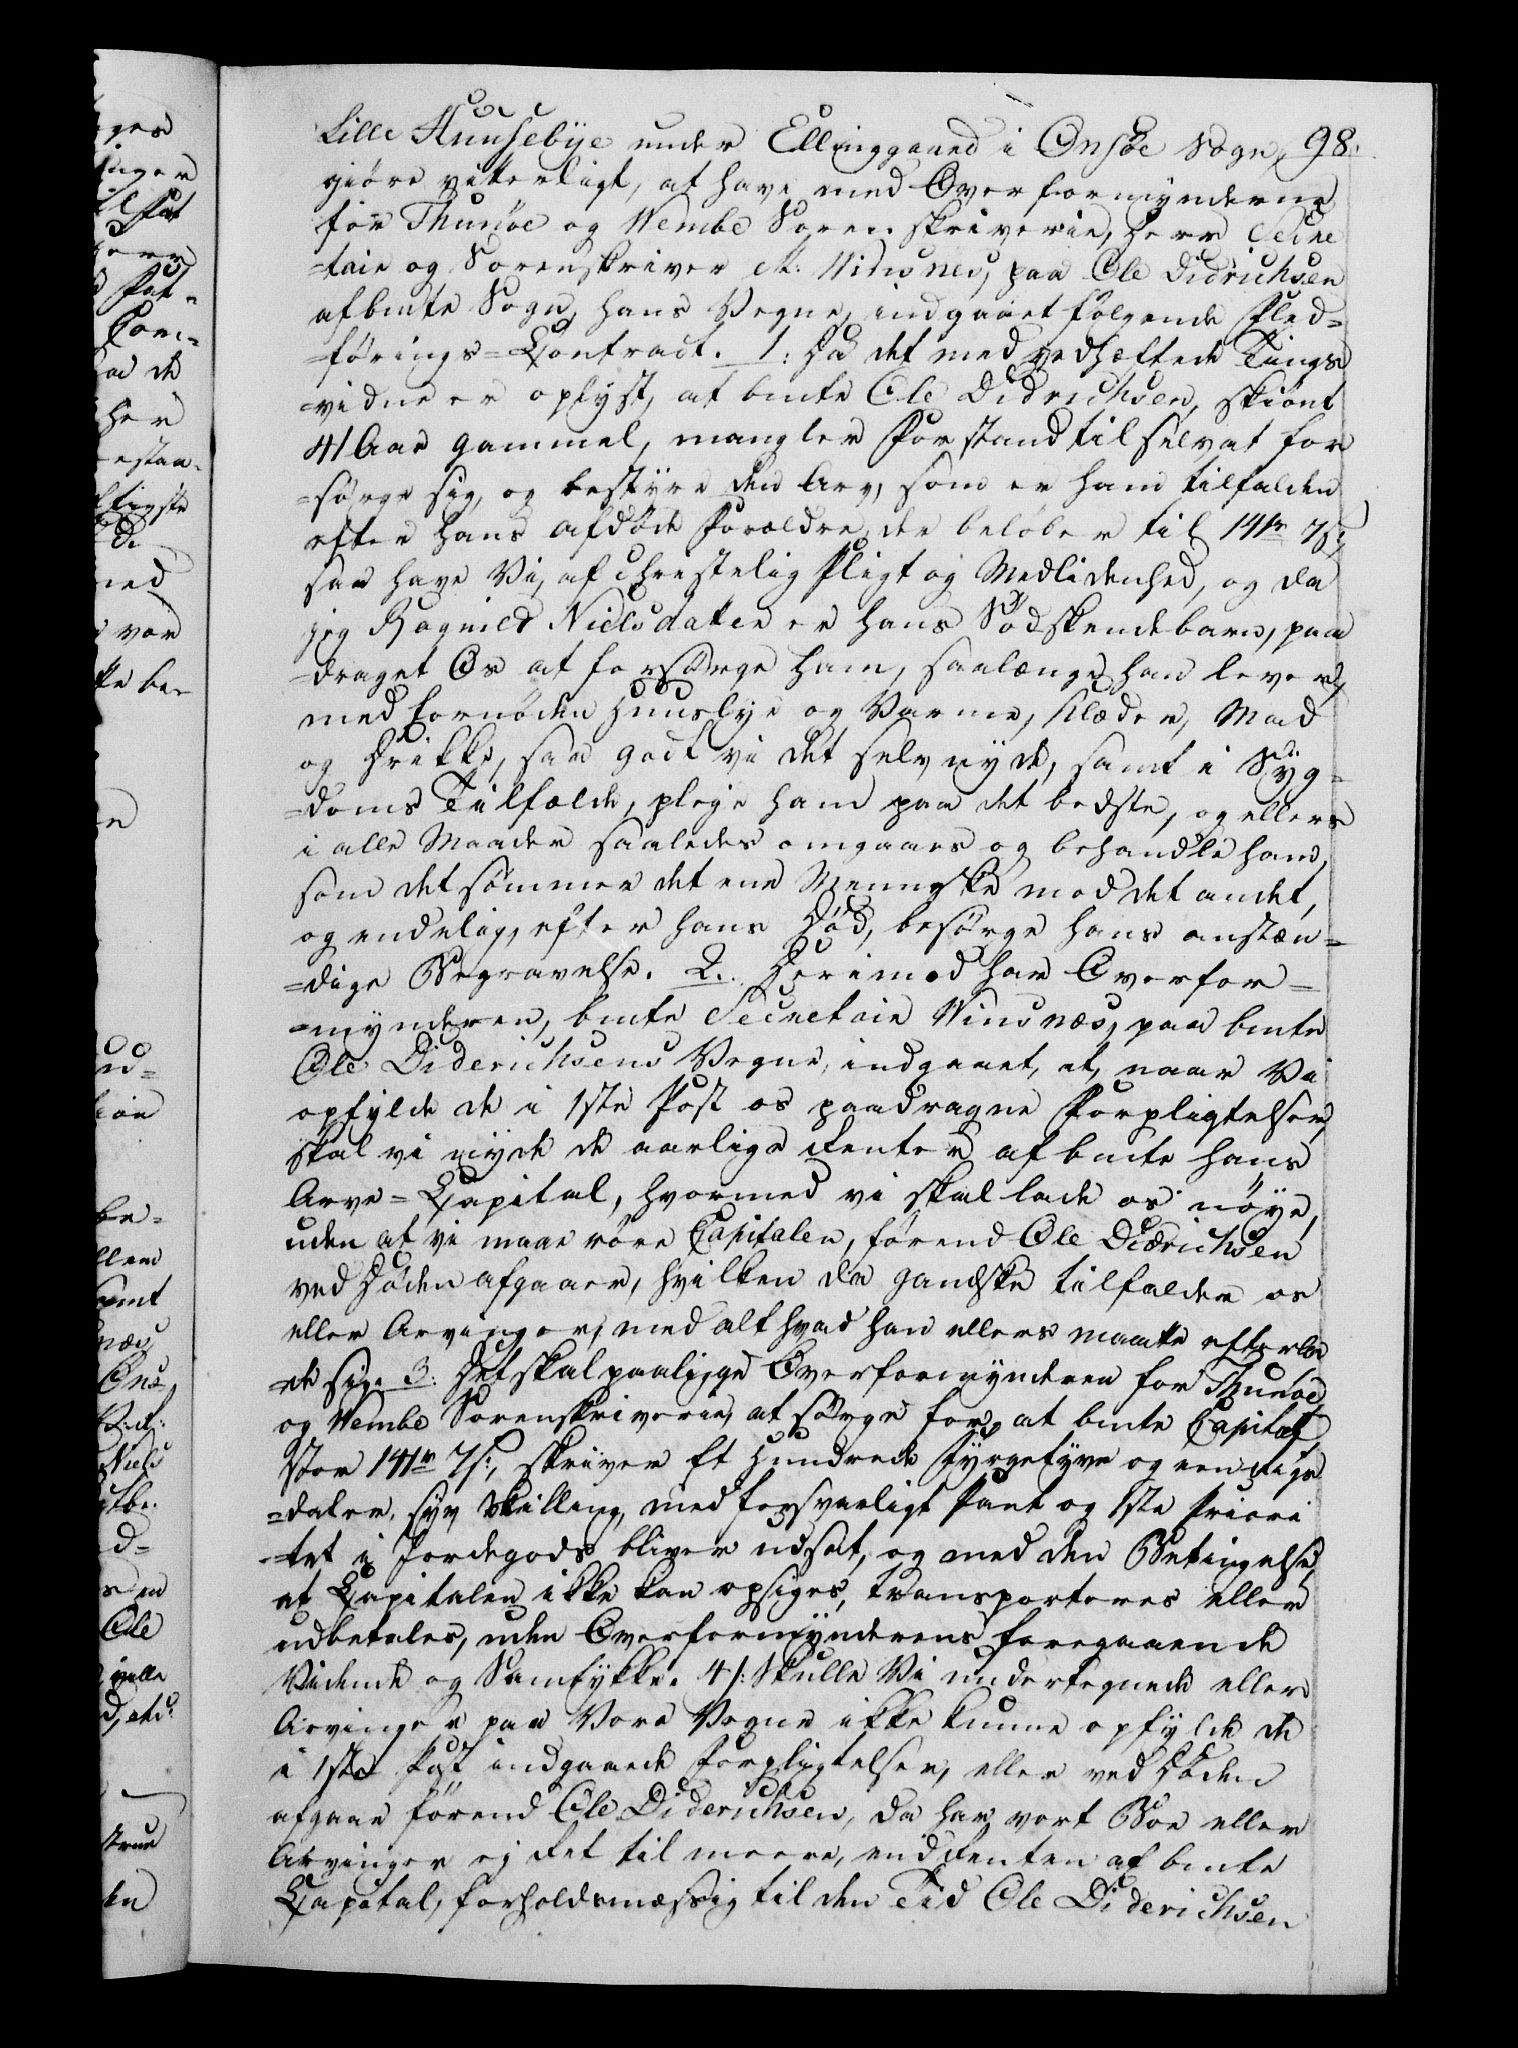 Lille Huusebÿe under Ellinggaard i Onsöe Sogn, 98.
giöre vitterligt, at have med Overformynderne
for Thunöe og Wembe Sorenskriverie, Herr Secre
=tair og Sorenskriver M: Winsnes, paa Ole Didrichsen
af bmte Sogn, hans Vegne, indgaaet fölgende Fled=
=förings=Contract. 1: Da det med vedhæftede Tings
=vidne er oplyst, at bmte Ole Didrichsen, skiönt
41 Aar gammel, mangler Forstand til selv at for
=sörge sig, og bestÿre den Arv, som er ham tilfalden
efter hans afdöde Forældre, der belöber til 141r 7s:,
saa have Vi, af christelig Pligt og Medlidenhed, og da
jeg Ragnild Nielsdatter er hans Södskendebarn, paa
=draget Os at forsörge ham, saalænge han lever,
med fornöden Huuslye og Varme, Klæder, Mad
og Drikke, saa godt vi det selv nyde, samt i Sÿg=
=doms Tilfælde, pleje ham paa det bedste, og ellers
i alle Maader saaledes omgaaes og behandle ham,
som det sömmer det ene Menneske mod det andet,
og endelig, efter hans Död, besörge hans anstæn=
=dige Begravelse. 2. Derimod har Overfor=
=mynderen, bmte Secretair Winsnæs, paa bmte
Ole Diderichsens Vegne, indgaaet, at, naar Vi
opfylde de i 1ste Post os paadragne Forpligtelser,
skal vi nyde de aarlige Renter af bmte hans
Arve=Capital, hvormed vi skal lade os nöye,
uden at vi maae röre Capitalen, förend Ole Didrichsen
ved Döden afgaaer, hvilken da gandske tilfalder os
eller Arvinger, med alt hvad han ellers maatte efterla
=de sig. 3: Det skal paaligge Overformynderen for Thunöe
og Wembe Sorenskriverie, at sörge for, at bmte Capital
stor 141r 7s:, skriver Et Hundrede Fyrgetyve og een Rigs
=daler, syv Skilling, med forsvarligt Pant og 1ste Priori
=tet i Jordegods bliver udsat, og med den Betingelse,
at Capitalen ikke kan opsiges, transporteres eller
udbetales, uden Overformynderens foregaaende
Vidende og Samtykke. 4/: Skulle Vi undertegnede eller
Arvinger paa Vore Vegne ikke kunne opfylde de
i 1ste Post indgaaede Forpligtelser, eller ved Döden
afgaae förend Ole Diderichsen, da har vort Boe eller
Arvinger ej Ret til meere, end Renten af bmte
Capital, forholdsmæssig til den Tid Ole Diderichsen